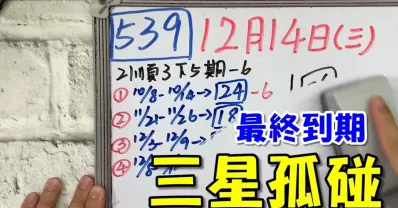 539 12月14日(三)
21順3下5期-6
① 10/8-10/14→24-6
② 11/21-11/26→18
③ 12/3-12/9→
④ 12/8-
最終到期
三星孤碰